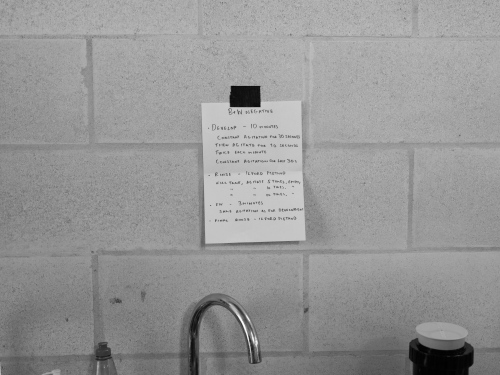 B+W NEGATIVE
- DEVELOP - 10 MINUTES
CONSTANT AGITATION FOR 30 SECONDS
THEN AGITATE FOR 10 SECONDS
TWICE EACH MINUTE
CONSTANT AGITATION FOR LAST 30 S
- RINSE - ILFORD METHOD
FILL TANK, AGITATE 5 TIMES, EMPTY,
" " 10 TIMES, "
" " 20 TIMES, "
- FIX - 3 MINUTES
SAME AGITATION AS FOR DEVELOPMENT
- FINAL RINSE - ILFORD METHOD